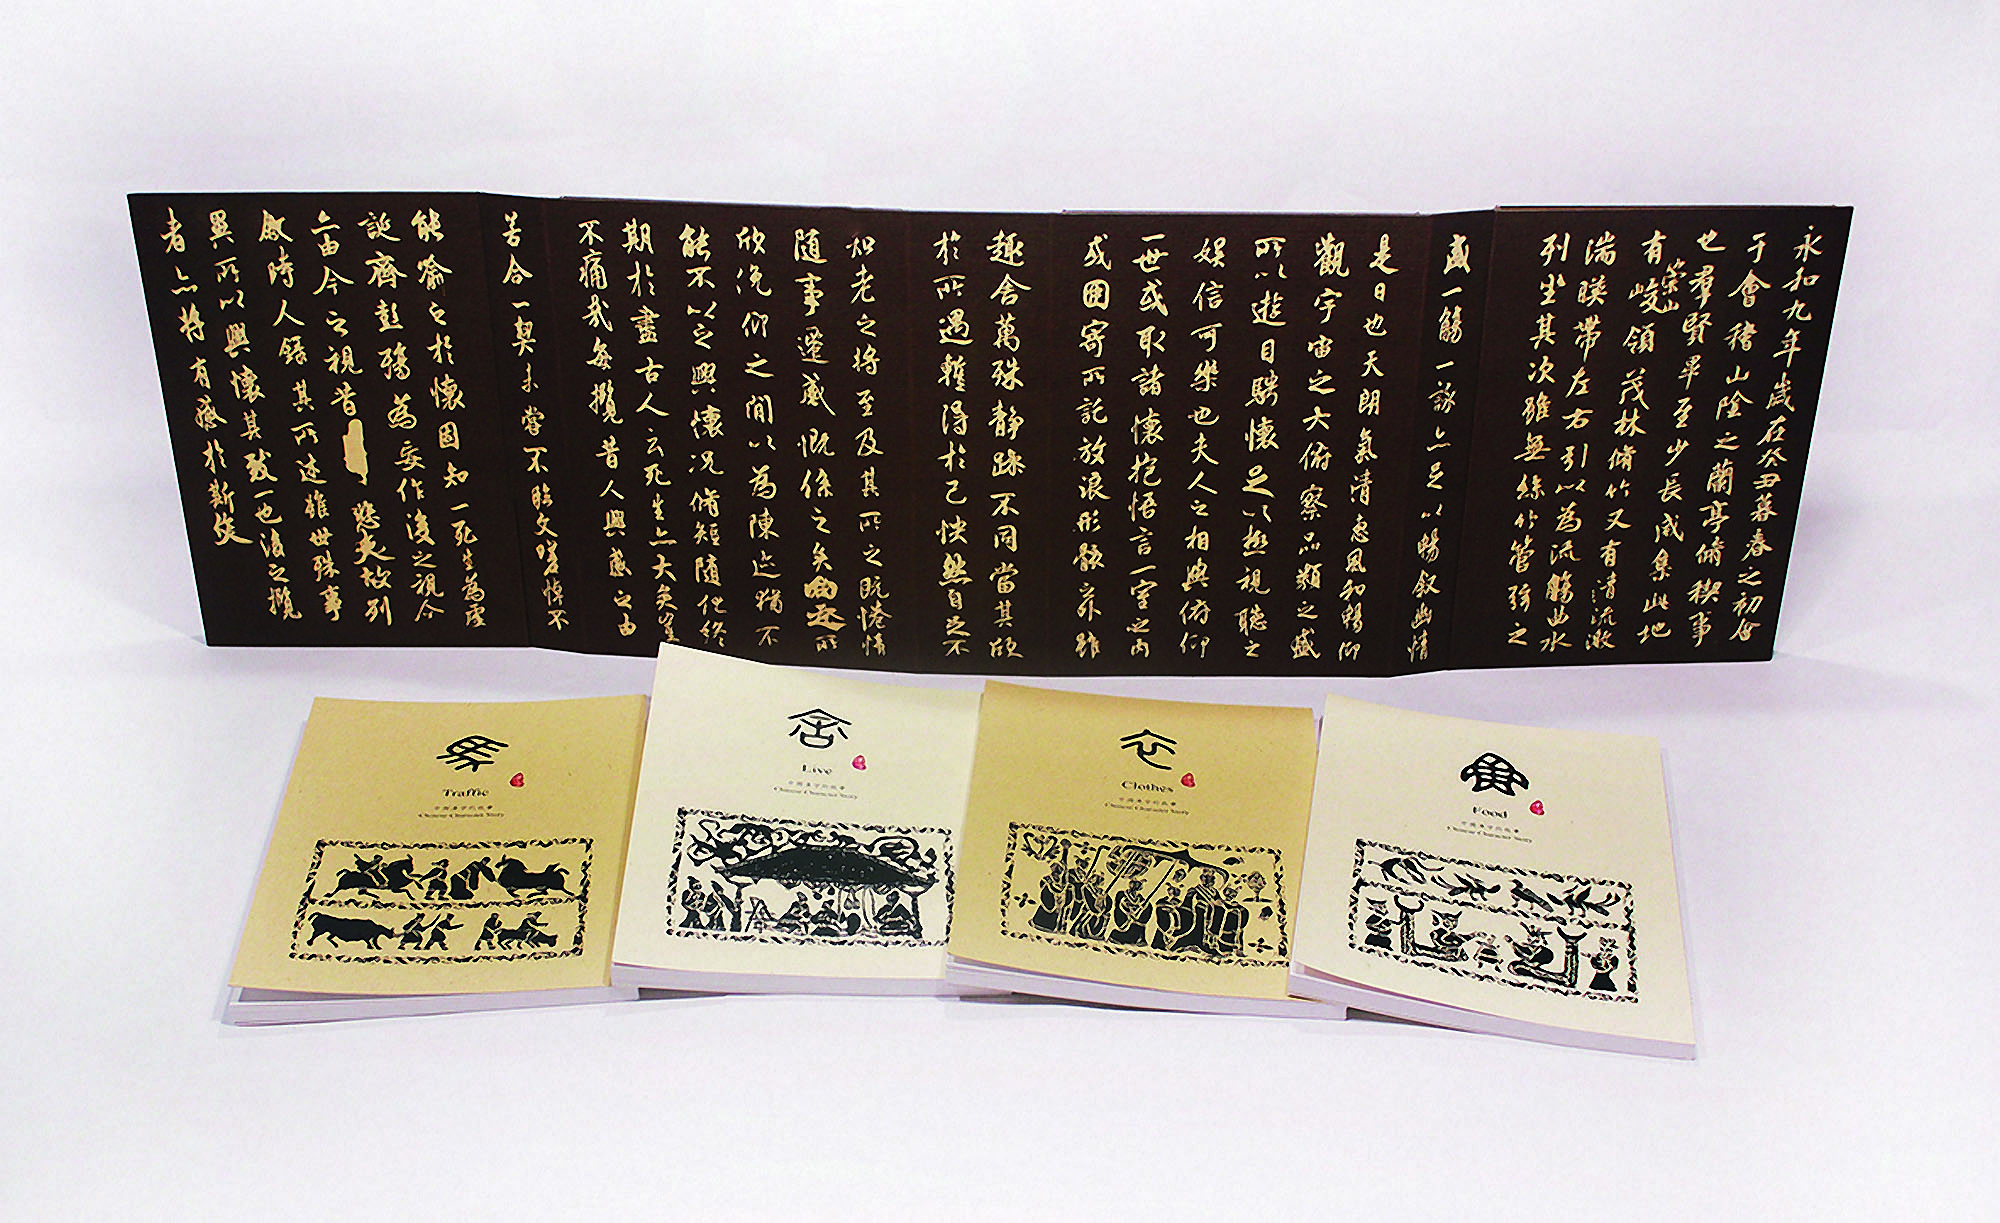 永和九年歲在癸丑暮春之初會
于會稽山陰之蘭亭脩稧事
也羣賢畢至少長咸集此地
有崇山峻領茂林脩竹又有清流激
湍暎帶左右引以為流觴曲水
列坐其次雖無絲竹管弦之
盛一觴一詠亦足以暢叙幽情
是日也天朗氣清惠風和暢仰
觀宇宙之大俯察品類之盛
所以遊目騁懷足以極視聽之
娛信可樂也夫人之相與俯仰
一世或取諸懷抱悟言一室之內
或因寄所託放浪形骸之外雖
趣舍萬殊靜躁不同當其欣
於所遇暫得於己怏然自足不
知老之將至及其所之既惓情
隨事遷感慨係之矣向之所
欣俛仰之閒以為陳迹猶不
能不以之興懷況脩短隨化終
期於盡古人云死生亦大矣豈
不痛哉每攬昔人興感之由
若合一契未嘗不臨文嗟悼不
能喻之於懷固知一死生為虛
誕齊彭殤為妄作後之視今
亦由今之視昔悲夫故列
敘時人錄其所述雖世殊事
異所以興懷其致一也後之攬
者亦將有感於斯文
馬
Traffic
中國漢字的故事
Chinese Character Story
舍
Live
中國漢字的故事
Chinese Character Story
衣
Clothes
中國漢字的故事
Chinese Character Story
食
Food
中國漢字的故事
Chinese Character Story